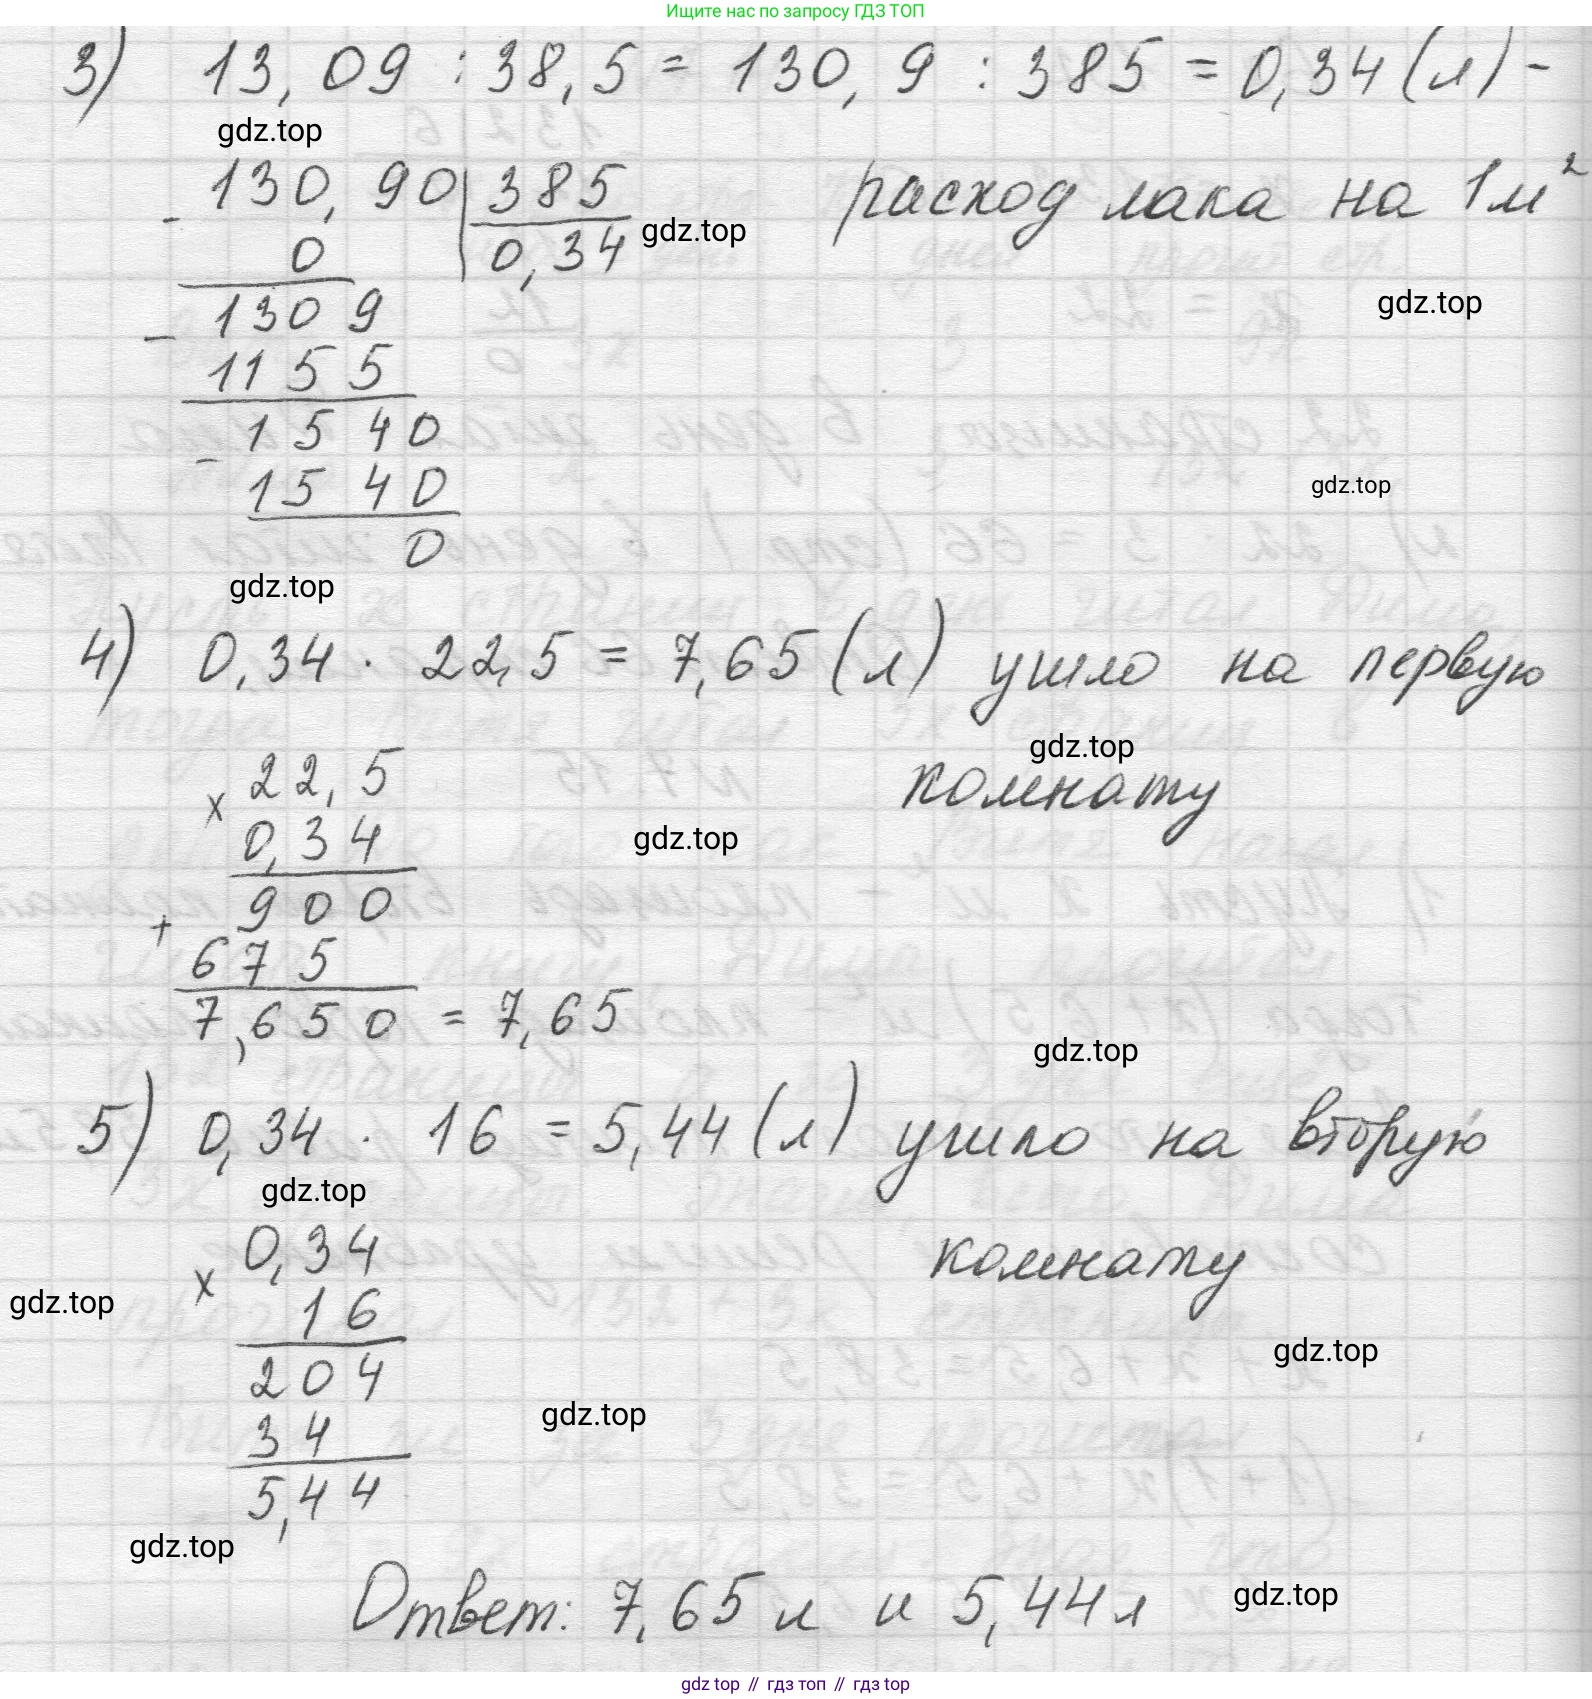 Ищите нас по запросу ГДЗ ТОП
3) 13,09 : 38,5 = 130,9 : 385 = 0,34 (л) -
gdz.top
130,90 | 385
расход лака на 1м²
- 0 0,34
gdz.top
1309
gdz.top
- 1155
1540
- 1540
gdz.top
0
gdz.top
4) 0,34 · 22,5 = 7,65 (л) ушло на первую
gdz.top
22,5
комнату
x 0,34
gdz.top
900
+ 675
7,650 = 7,65
gdz.top
5) 0,34 · 16 = 5,44 (л) ушло на вторую
gdz.top
0,34
комнату
x 16
gdz.top
gdz.top
204
gdz.top
34
5,44
gdz.top
Ответ: 7,65 л и 5,44 л
gdz.top
gdz top // гдз топ // гдз top